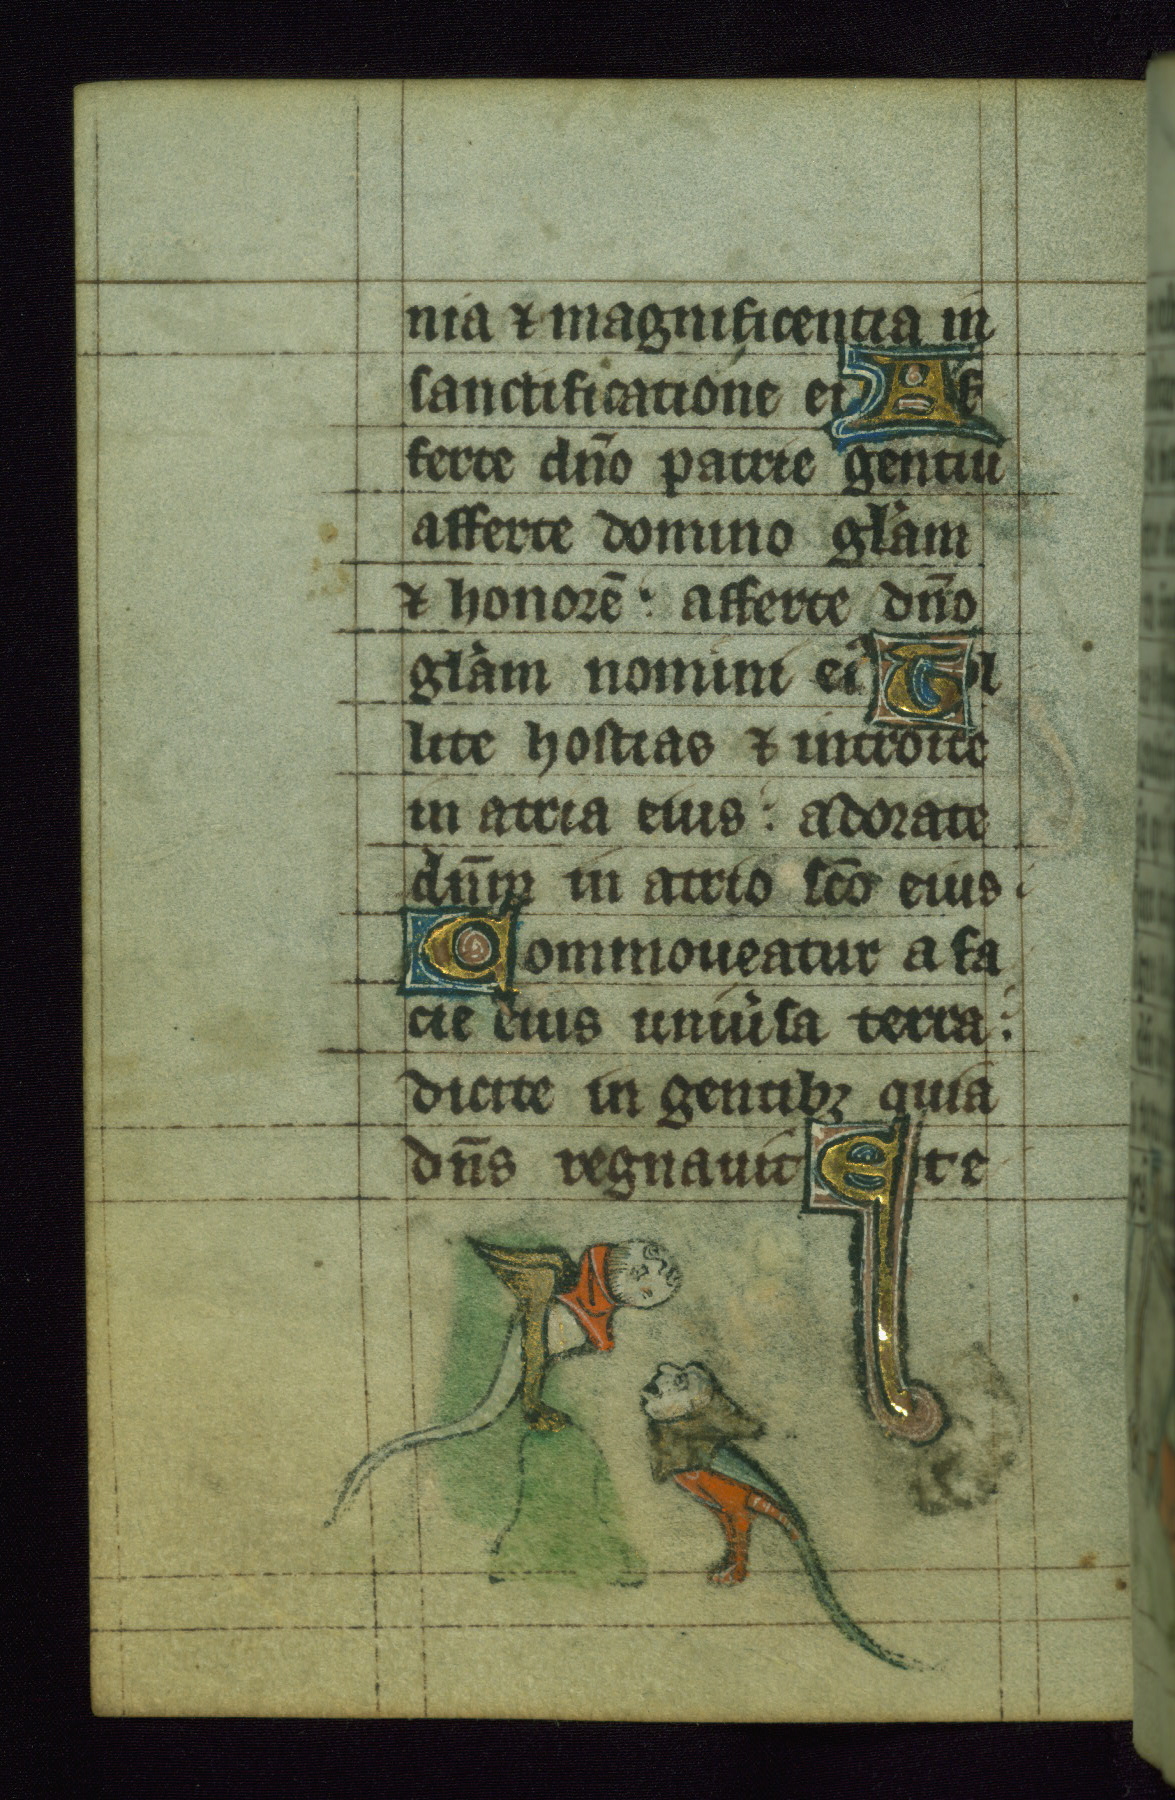 nia ⁊ magnificentia in
sanctificatione ei Af
ferte dn̄o patrie gentiū
afferte domino gl'am
⁊ honorē : afferte dn̄o
gl'am nomini ei' Tol
lite hostias ⁊ introite
in atria eius : adorate
dn̄m in atrio sc̄o eius :
Commoueatur a fa
cie eius uniu'sa terra :
dicite in gentibꝫ quia
dn̄s regnauit Et e